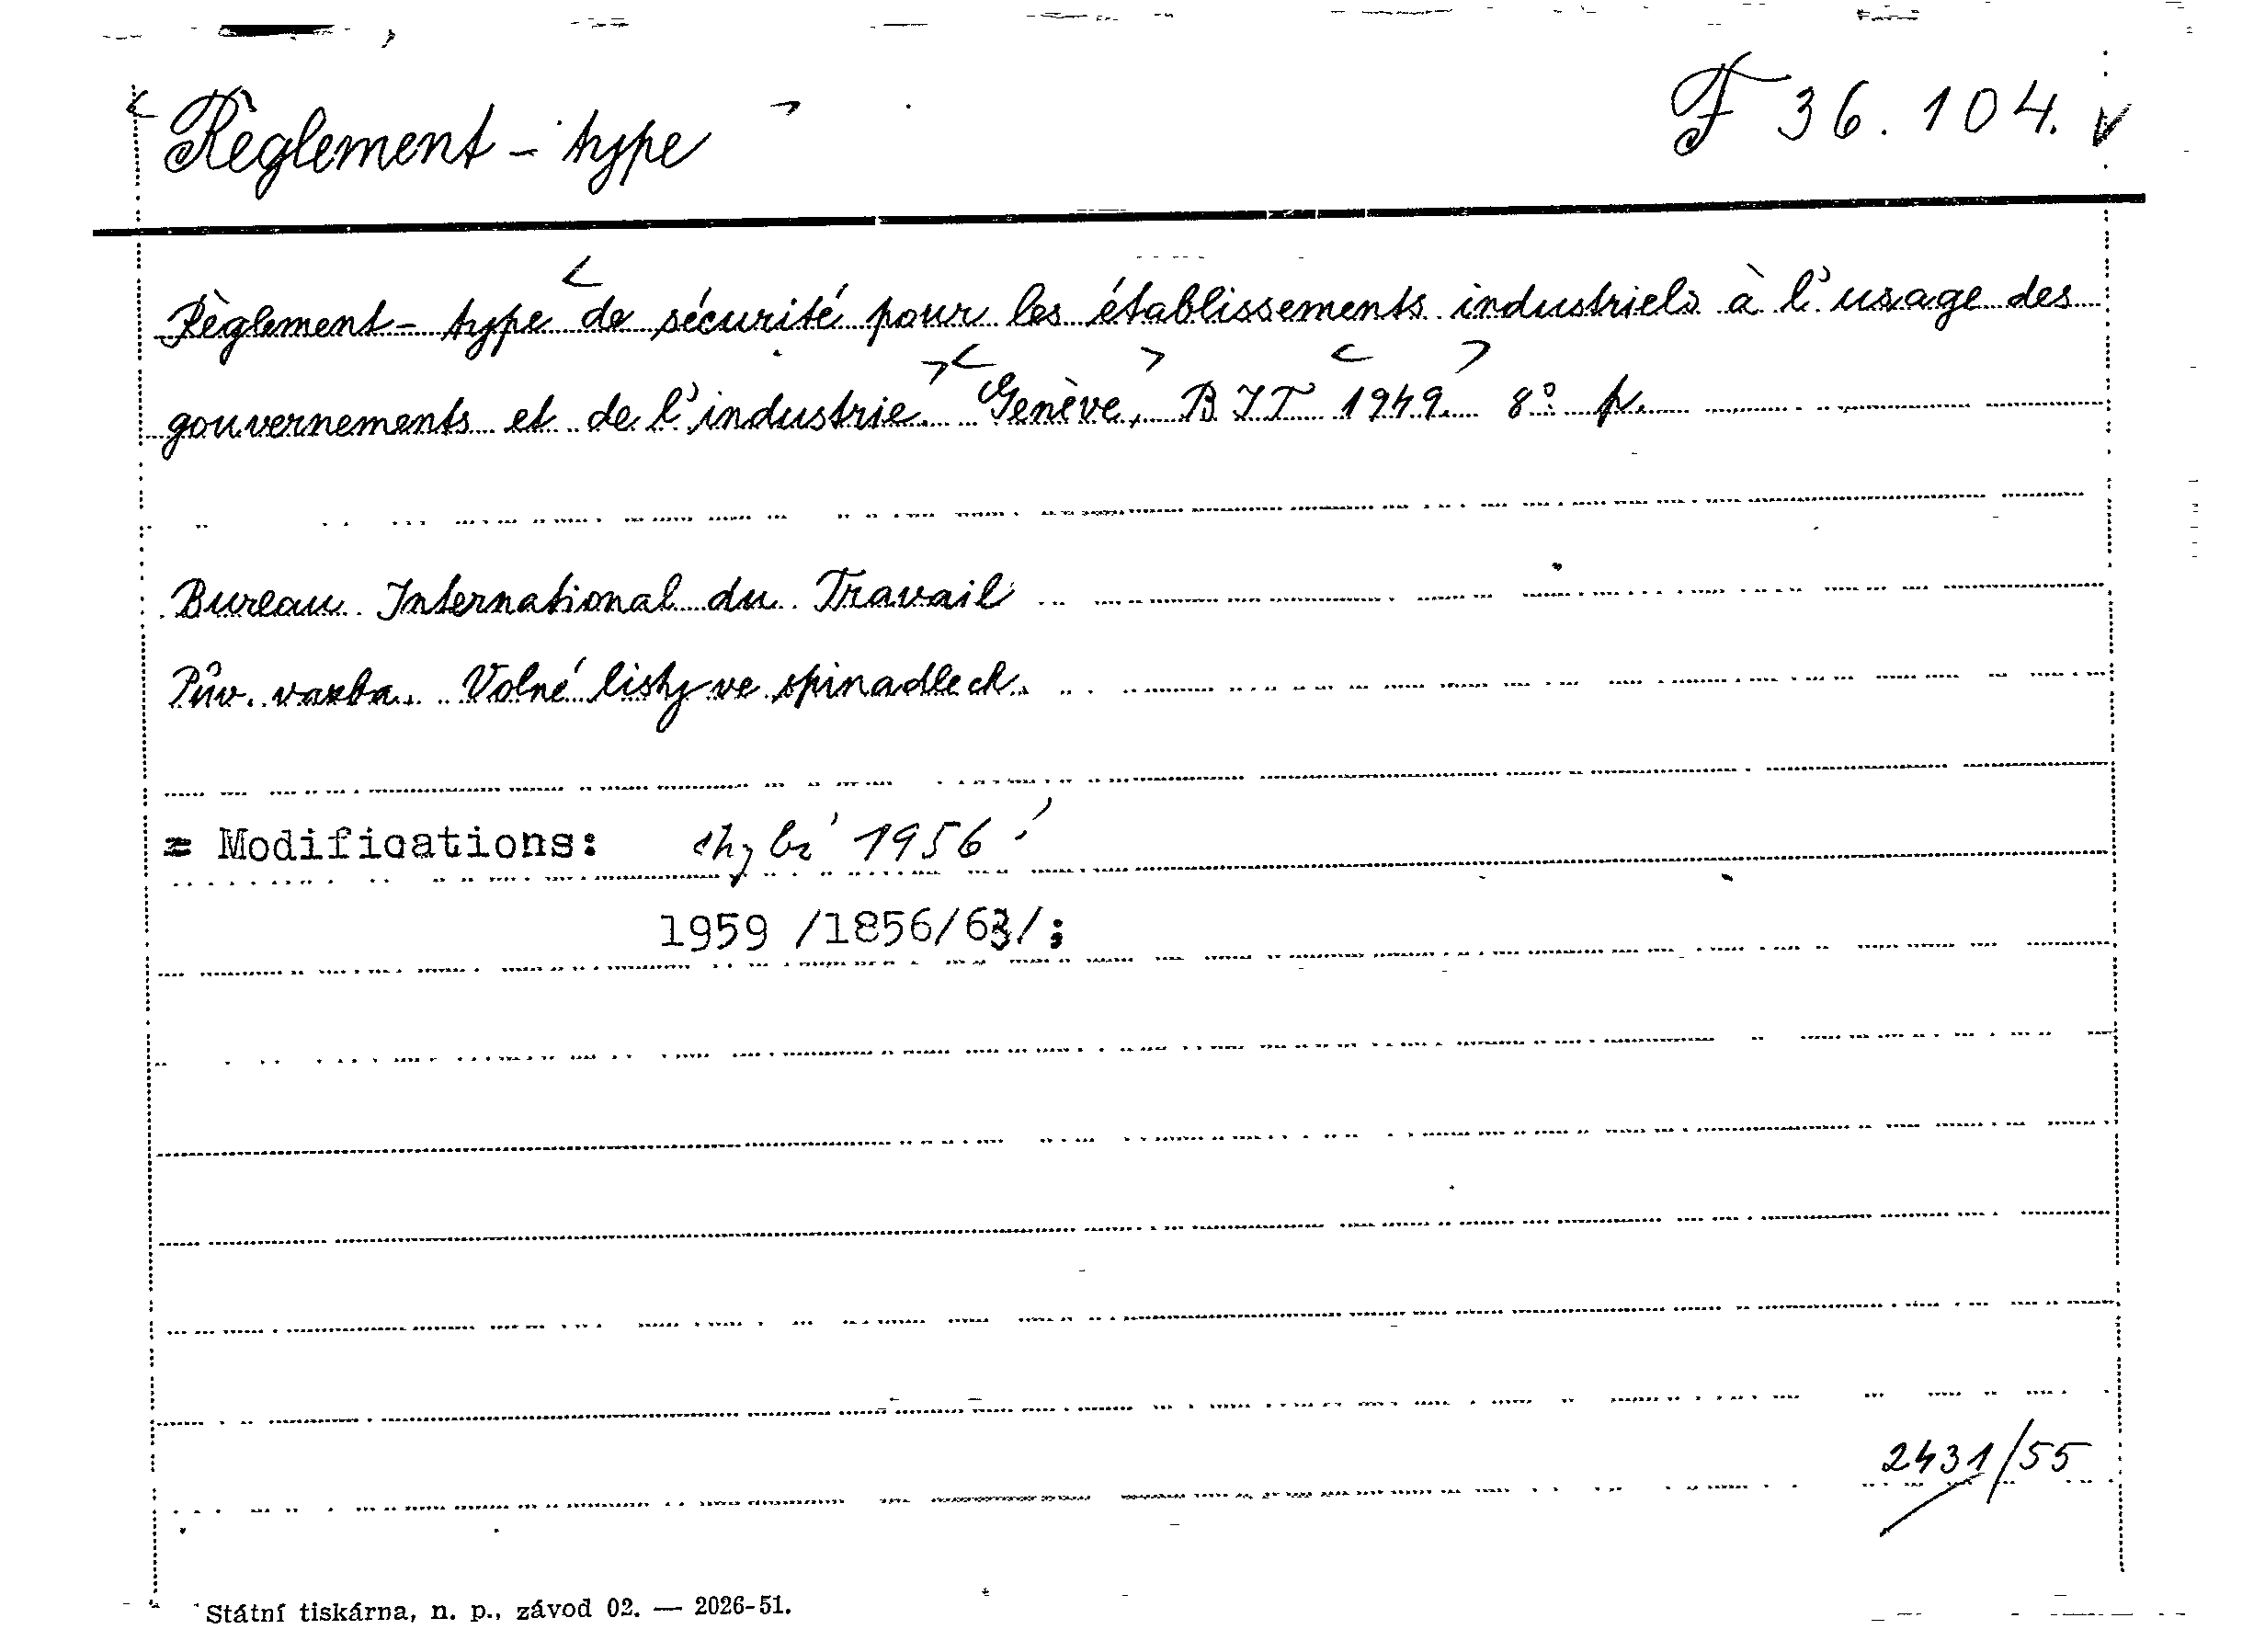 Règlement - type
F 36.104.
Règlement - type de sécurité pour les établissements industriels à l'usage des
gouvernements et de l'industrie. Genève, BIT 1949. 8° p.
Bureau International du Travail
Pův. vazba. Volné listy ve spinadlech.
= Modifications: chybí 1956
1959 /1856/63/;
2431/55
Státní tiskárna, n. p., závod 02. — 2026-51.